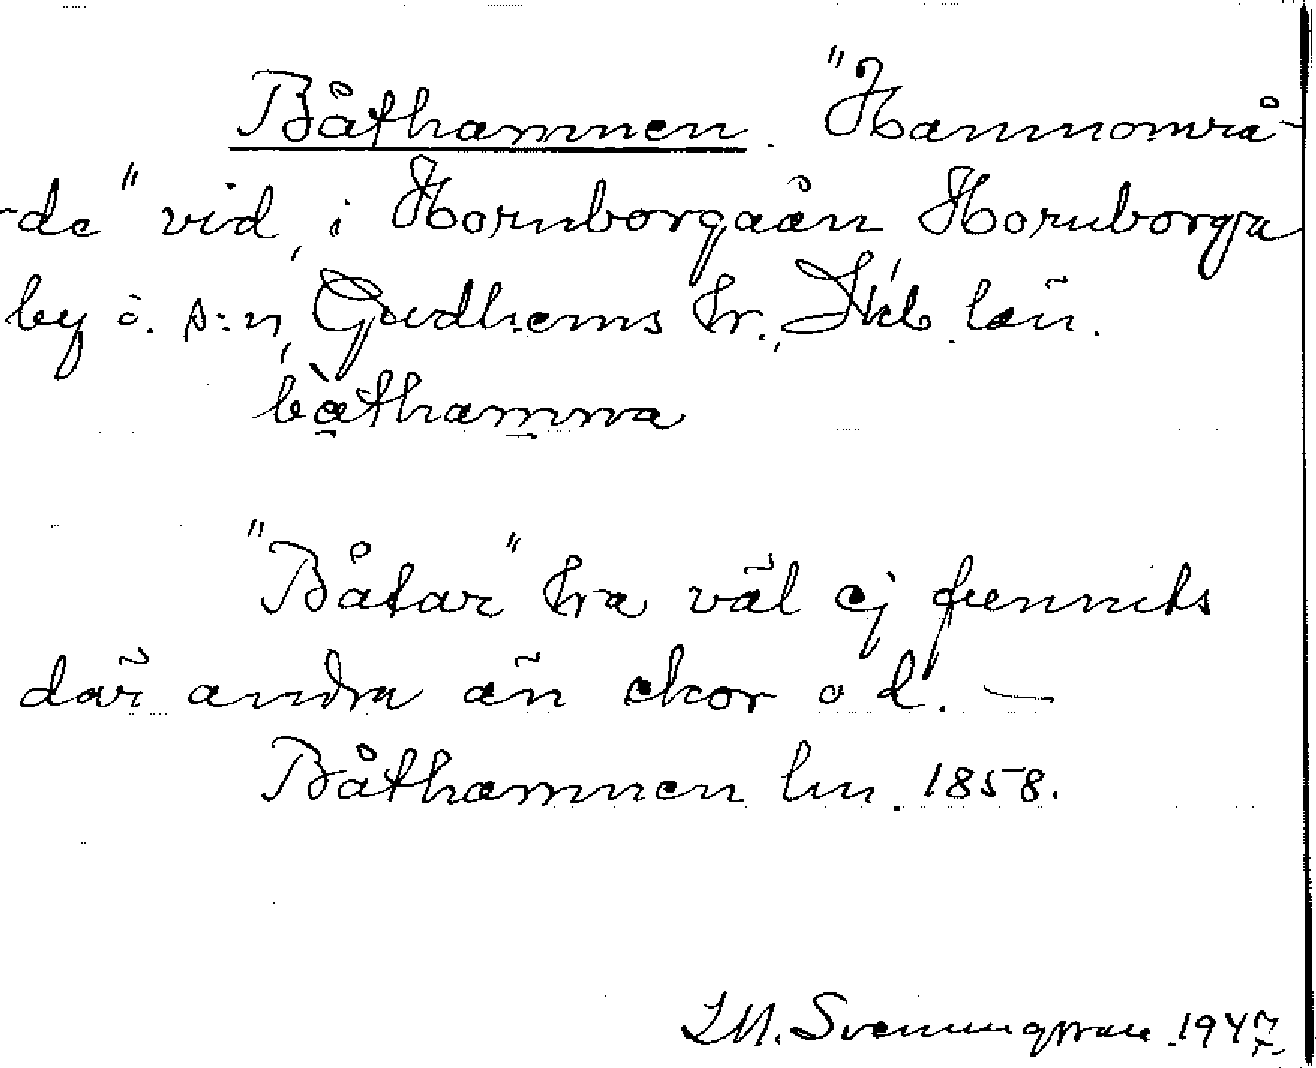 Båthamnen. "Hamnområ-
-de" vid, i Hornborgaån Hornborga
by o. s:n, Gudhems hr., Skb. län.
bàthamna
"Båtar" ha väl ej funnits
där andra än ekor o d. —
Båthamnen lm. 1858.
J.M. Svenningsson 1947